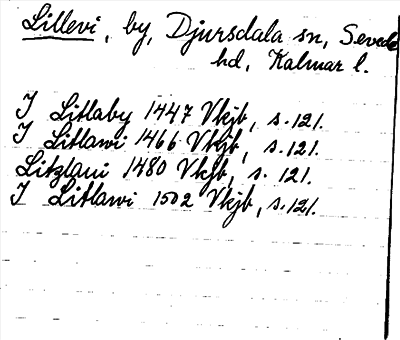 Lillevi, by, Djursdala sn, Sevede
hd, Kalmar l.
I Litlaby 1447 Vkjb, s. 121.
I Litlawi 1466 Vkjb, s. 121.
Litzlaui 1480 Vkjb, s. 121.
I Litlawi 1502 Vkjb, s. 121.